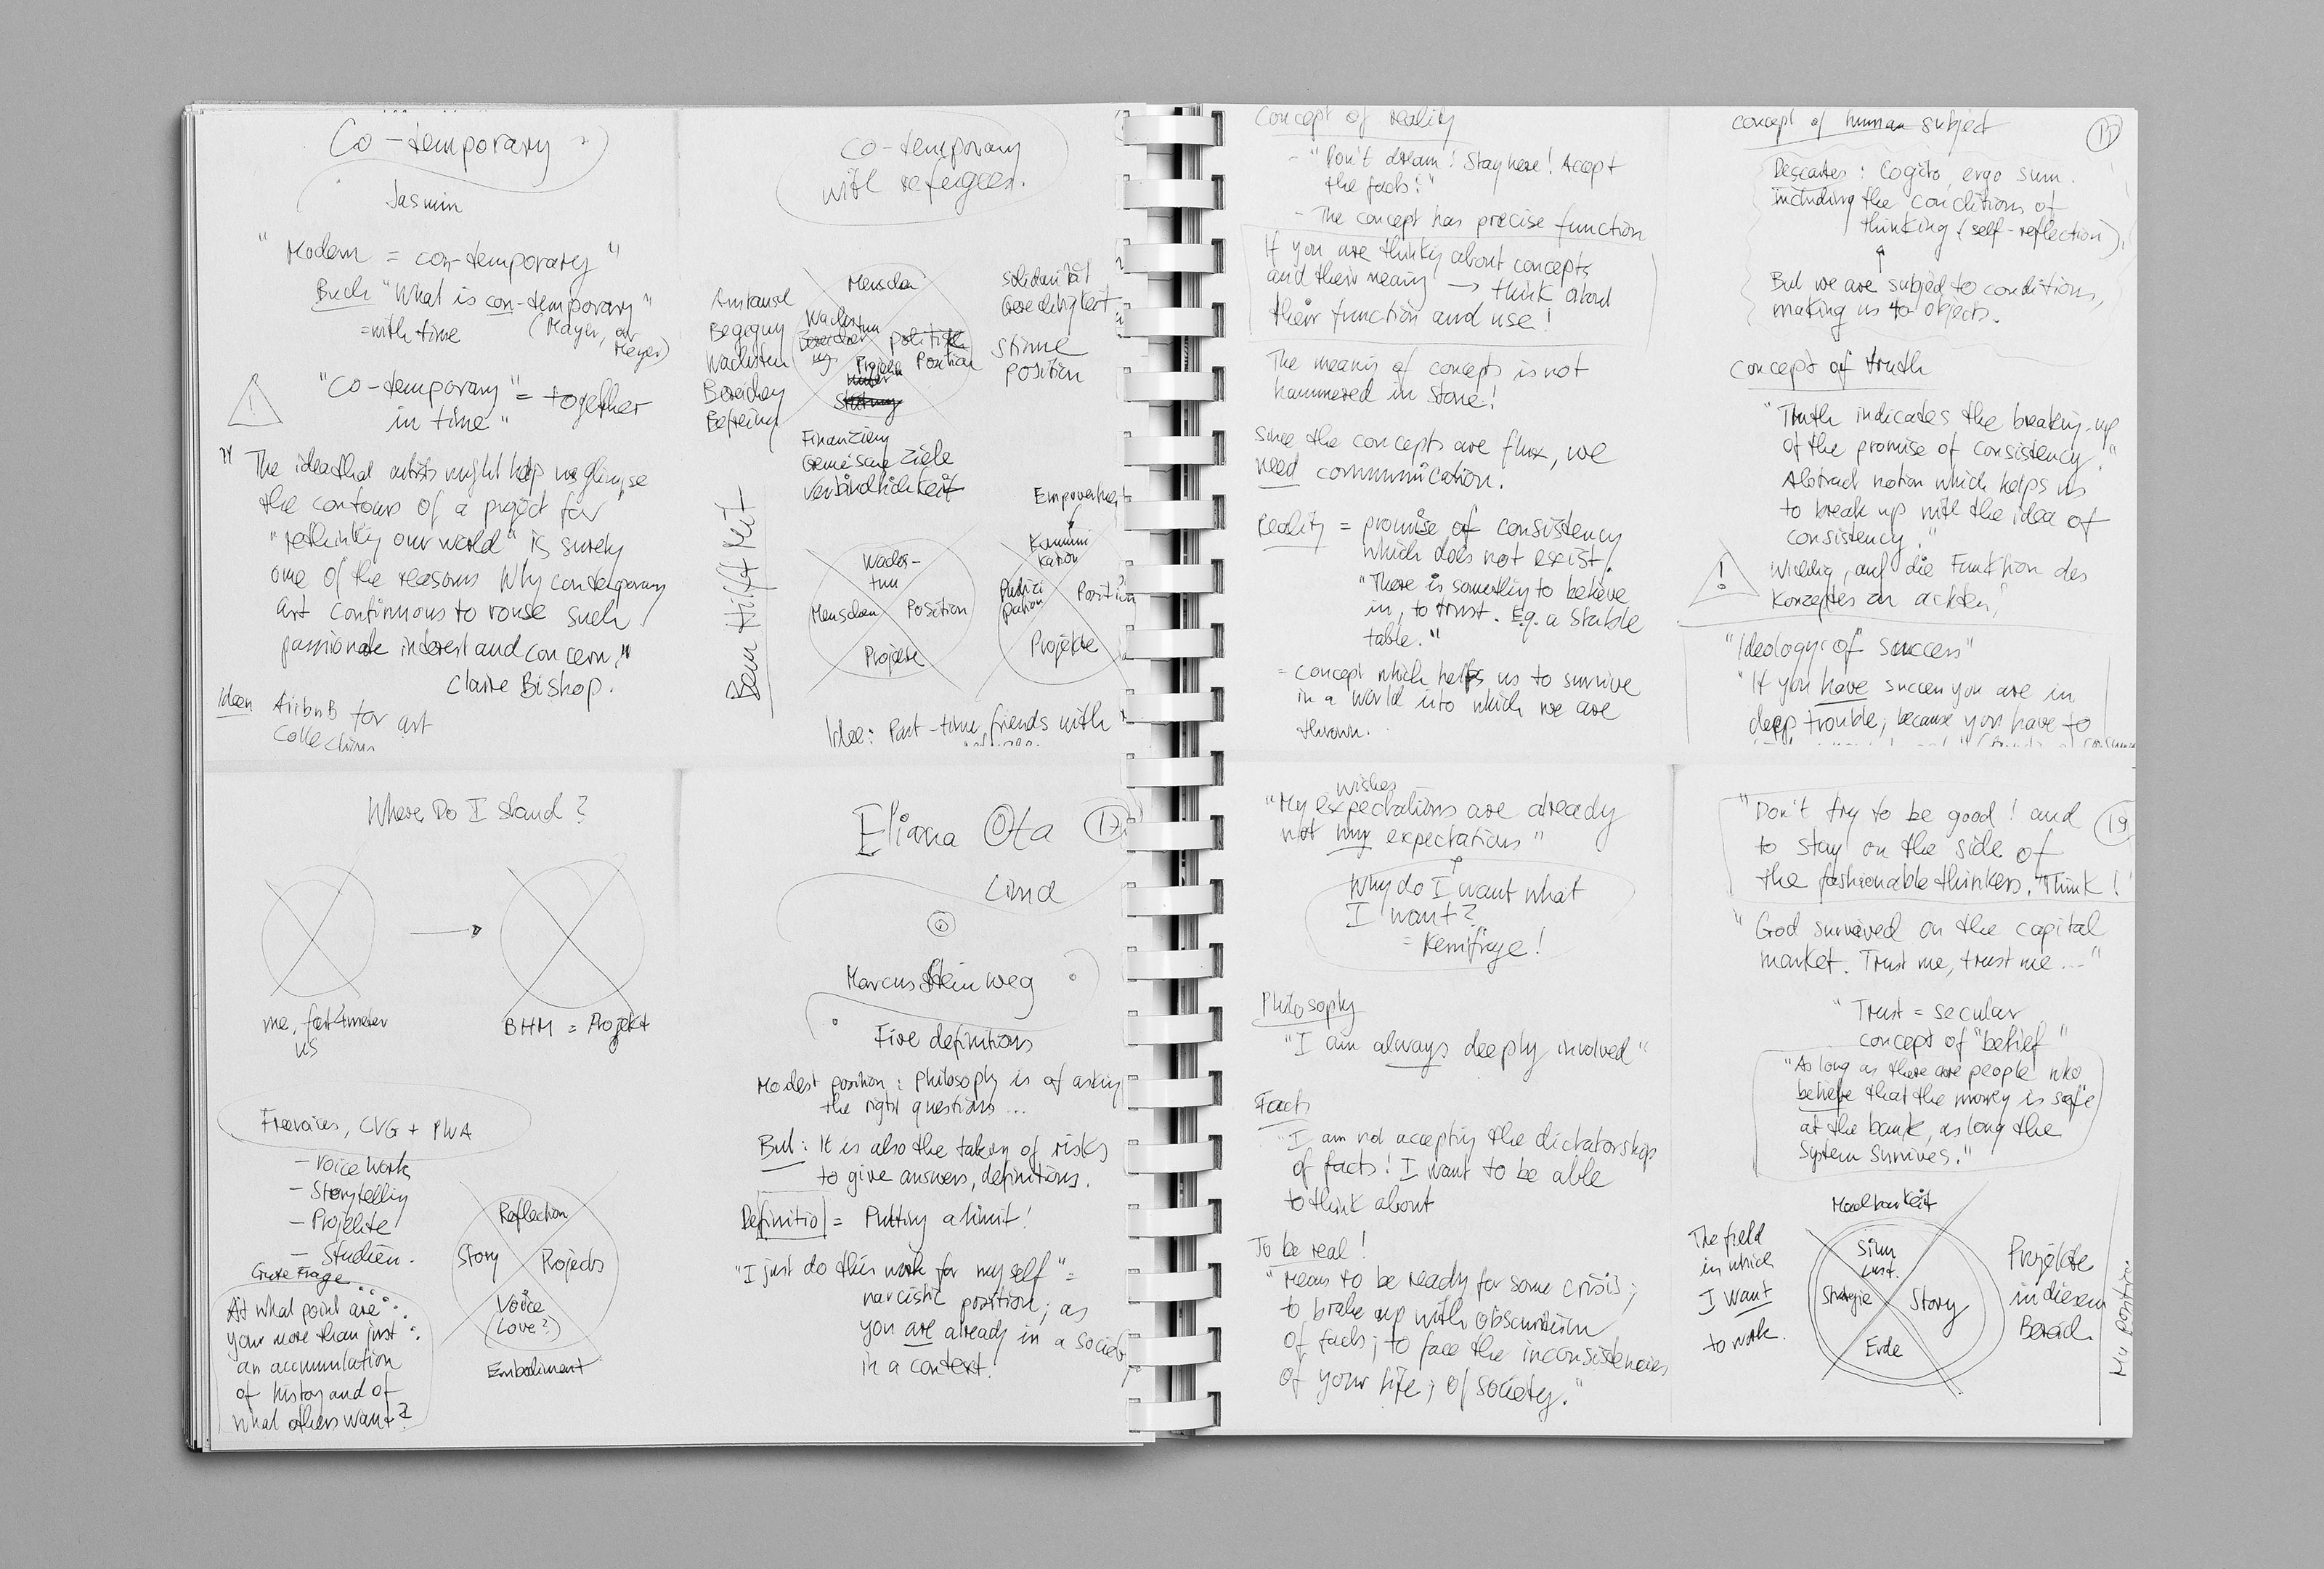 Co-temporary
Jasmin
"Modern = con-temporary"
Buch "What is con-temporary"
=with time (Mayer, or
Meyer)
"Co-temporary" = together
in time"
" The idea that artists might help us glimpse
the contours of a project for
"rethinking our world" is surely
one of the reasons why contemporary
art continuous to rouse such
passionate interest and concern."
Claire Bishop.
Ideen AirbnB for art
Collections
Co-temporary
with refugees.
Menschen
Austausch
Begegnung
Wachstum
Bereichern
Befreiung
Wachstum
Projekte
Position
Solidarität
Gerechtigkeit
Stimme
Position
Finanzierung
Gemeinsame Ziele
Verbindlichkeit
Bem Hilft Mit
Wachs-
tum
Menschen Position
Projekte
Empowerment
Kommuni
kation
Partizi
pation Position
Projekte
Idee: Part-time friends with
Where Do I stand?
me,
us
BHM = Projekt
Freevoices, CVG + PWA
- Voice Work
- Storytelling
- Projekte
- Studien.
Gute Frage
At what point are
your more than just
an accumulation
of history and of
what others want?
Reflection
Story Projects
Voice
(Love?)
Embodiment
Eliana Ota 17
Lima
Marcus Steinweg
Five definitions
Modest position: Philosophy is of asking
the right questions...
But: It is also the taking of risks
to give answers, definitions.
Definitio = Putting a limit!
"I just do this work for myself" =
narcistic position; as
you are already in a society
in a context.
Concept of reality
- "Don't dream! Stay here! Accept
the facts!"
- The concept has precise function
If you are thinking about concepts
and their meaning → think about
their function and use!
The meaning of concepts is not
hammered in stone!
Since the concepts are flux, we
need communication.
Reality = promise of consistency
which does not exist!
"There is something to believe
in, to trust. E.g. a stable
table."
= Concept which helps us to survive
in a world into which we are
thrown.
concept of human subject
Descartes: Cogito, ergo sum.
Including the conditions of
thinking (self-reflection).
But we are subject to conditions,
making us to objects.
Concept of truth
"Truth indicates the breaking-up
of the promise of consistency."
Abstract notion which helps us
to break up with the idea of
consistency."
! Wichtig, auf die Funktion des
Konzeptes zu achten!
"Ideology of success"
"If you have success you are in
deep trouble, because you have to
wishes
"My expectations are already
not my expectations"
Why do I want what
I want?
= Kernfrage!
Philosophy
"I am always deeply involved"
Facts
"I am not accepting the dictatorship
of facts! I want to be able
to think about
To be real!
"Means to be ready for some crisis;
to brake up with obscurism
of facts; to face the inconsistencies
of your life; of society."
"Don't try to be good! and 19
to stay on the side of
the fashionable thinkers. "Think!
"God survived on the capital
market. Trust me, trust me..."
"Trust = secular
concept of "belief"
"As long as there are people who
believe that the money is safe
at the bank, as long the
system survives."
Machbarkeit
The field
in which
I want
to work.
Sinn
Lust.
Strategie Story
Erde
Projekte
in diesem
Bereich
My position